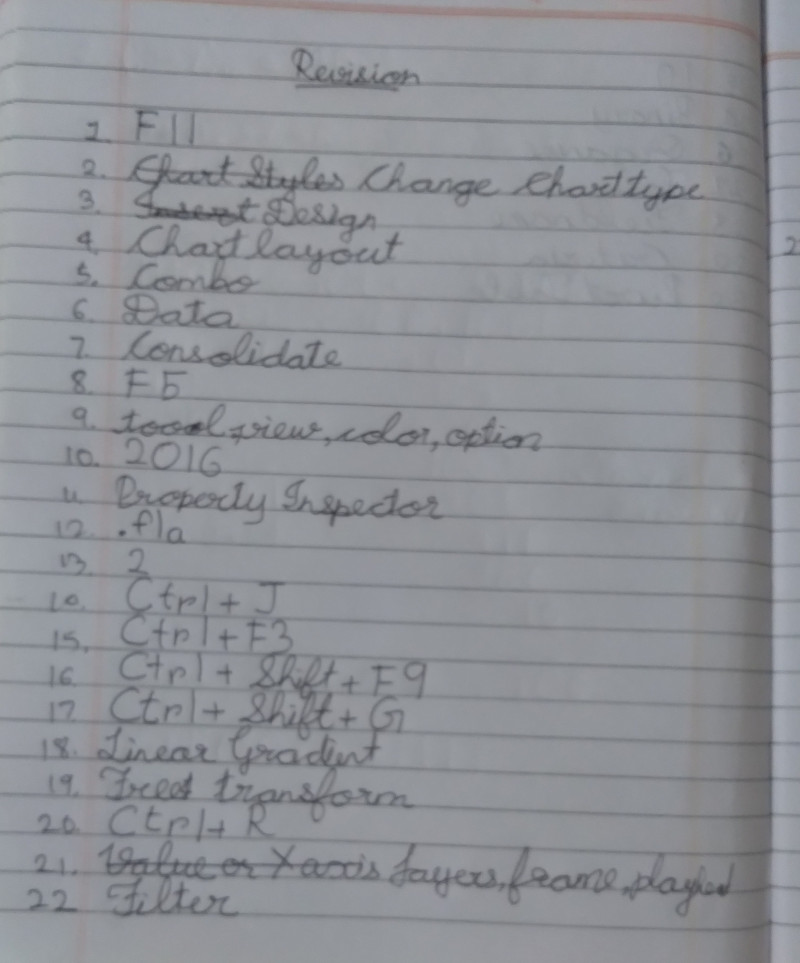 Revision
1. F11
2. Chart Styles Change Chart type
3. Insert Design
4. Chart layout
5. Combo
6. Data
7. Consolidate
8. F5
9. tool, view, color, option
10. 2016
11. Property Inspector
12. .fla
13. 2
10. Ctrl + J
15. Ctrl + F3
16. Ctrl + Shift + F9
17. Ctrl + Shift + G
18. Linear Gradient
19. Free transform
20. Ctrl + R
21. Value or X axis layers, frame, playhed
22 Filter
2